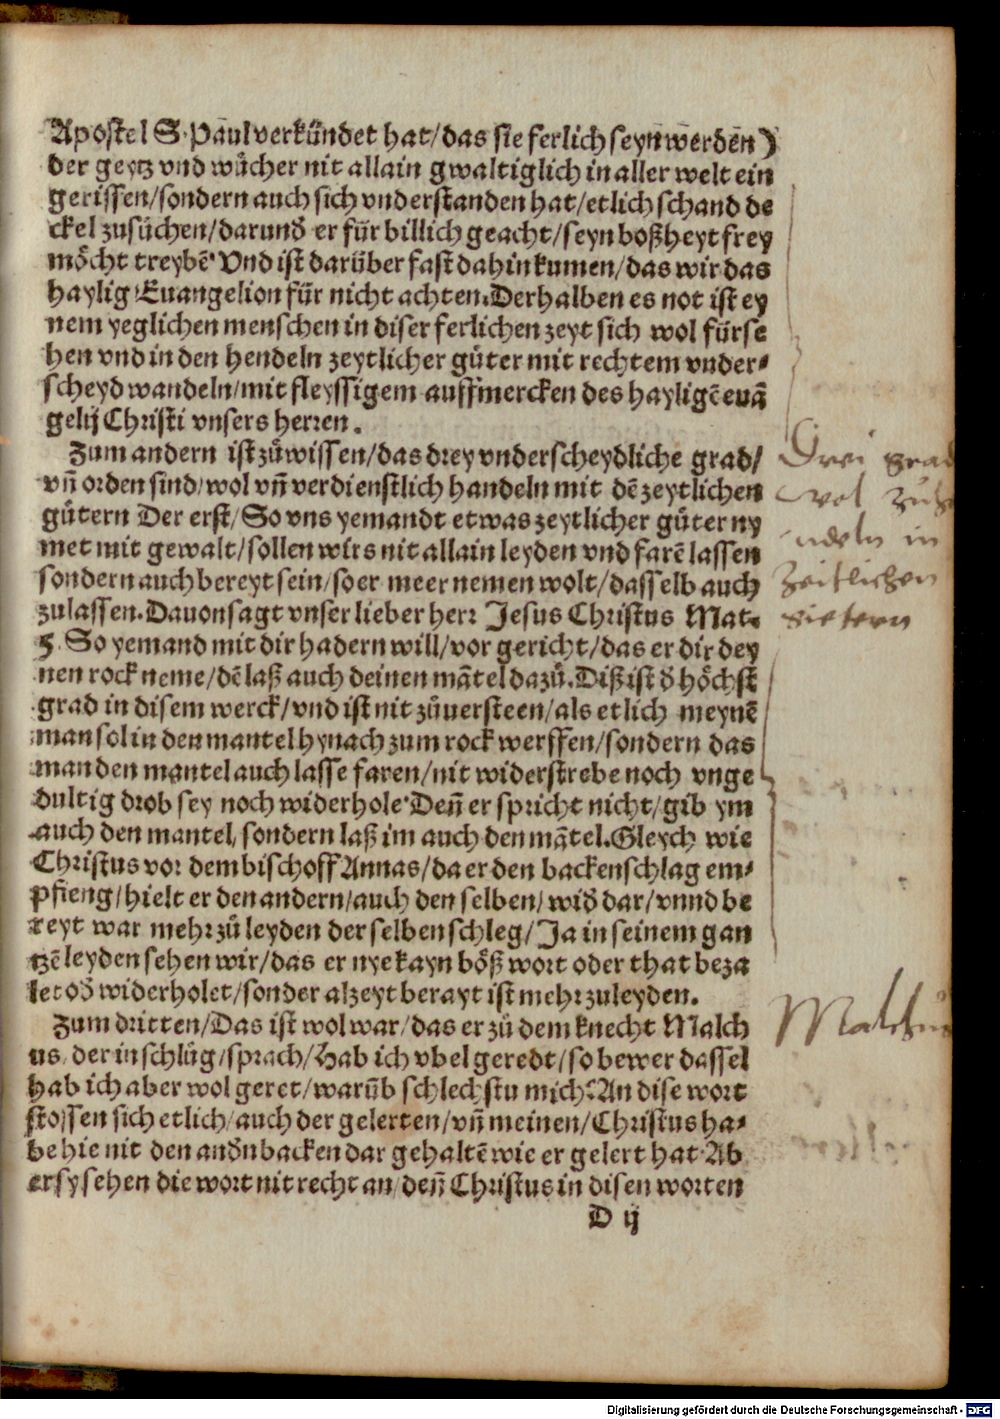 Apostel S. Paul verkündet hat/das sie ferlich seyn werden)
der geytz vnd wůcher nit allain gwaltiglich in aller welt ein
gerissen/sondern auch sich vnderstanden hat/etlich schand de
ckel zusůchen/darund̄ er für billich geacht/seyn boßheyt frey
möcht treybē Vnd ist darüber fast dahin kumen/das wir das
haylig Euangelion für nicht achten. Derhalben es not ist ey
nem yeglichen menschen in diser ferlichen zeyt sich wol fürse
hen vnd in den hendeln zeytlicher gůter mit rechtem vnder⸗
scheyd wandeln/mit fleyssigem auffmercken des hayligē euā
gelij Christi vnsers herren.
Zum andern ist zůwissen/das drey vnderscheydliche grad/
vn̄ orden sind/wol vn̄ verdienstlich handeln mit dē zeytlichen
gůtern Der erst/So vns yemandt etwas zeytlicher gůter ny
met mit gewalt/sollen wirs nit allain leyden vnd farē lassen
sondern auch bereyt sein/so er meer nemen wolt/dasselb auch
zulassen. Dauon sagt vnser lieber herr Jesus Christus Mat.
5. So yemand mit dir hadern will/vor gericht/das er dir dey
nen rock neme/dē laß auch deinen mātel dazů. Diß ist d̄ höchst
grad in disem werck/vnd ist nit zůuersteen/als etlich meynē
man sol in den mantel hynach zum rock werffen/sondern das
man den mantel auch lasse faren/nit widerstrebe noch vnge
dultig drob sey noch widerhole Den̄ er spricht nicht/gib ym
auch den mantel/sondern laß im auch den mātel. Gleych wie
Christus vor dem bischoff Annas/da er den backenschlag em⸗
pfieng/hielt er den andern/auch den selben/wid̄ dar/vnnd be
reyt war mehr zů leyden der selben schleg/Ja in seinem gan
tzē leyden sehen wir/das er nye kayn böß wort oder that beza
let od̄ widerholet/sonder alzeyt berayt ist mehr zuleyden.
Zum dritten/Das ist wol war/das er zů dem knecht Malch
us/der in schlůg/sprach/Hab ich vbel geredt/so bewer dassel
hab ich aber wol geret/warūb schlechstu mich? An dise wort
stossen sich etlich/auch der gelerten/vn̄ meinen/Christus ha⸗
be hie nit den and̄n backen dar gehaltē wie er gelert hat Ab
er sy sehen die wort nit recht an/den̄ Christus in disen worten
D ij
Drei grad
wol zuha
ndeln in
Zeitlichen
gietern
Malchus
Digitalisierung gefördert durch die Deutsche Forschungsgemeinschaft - DFG